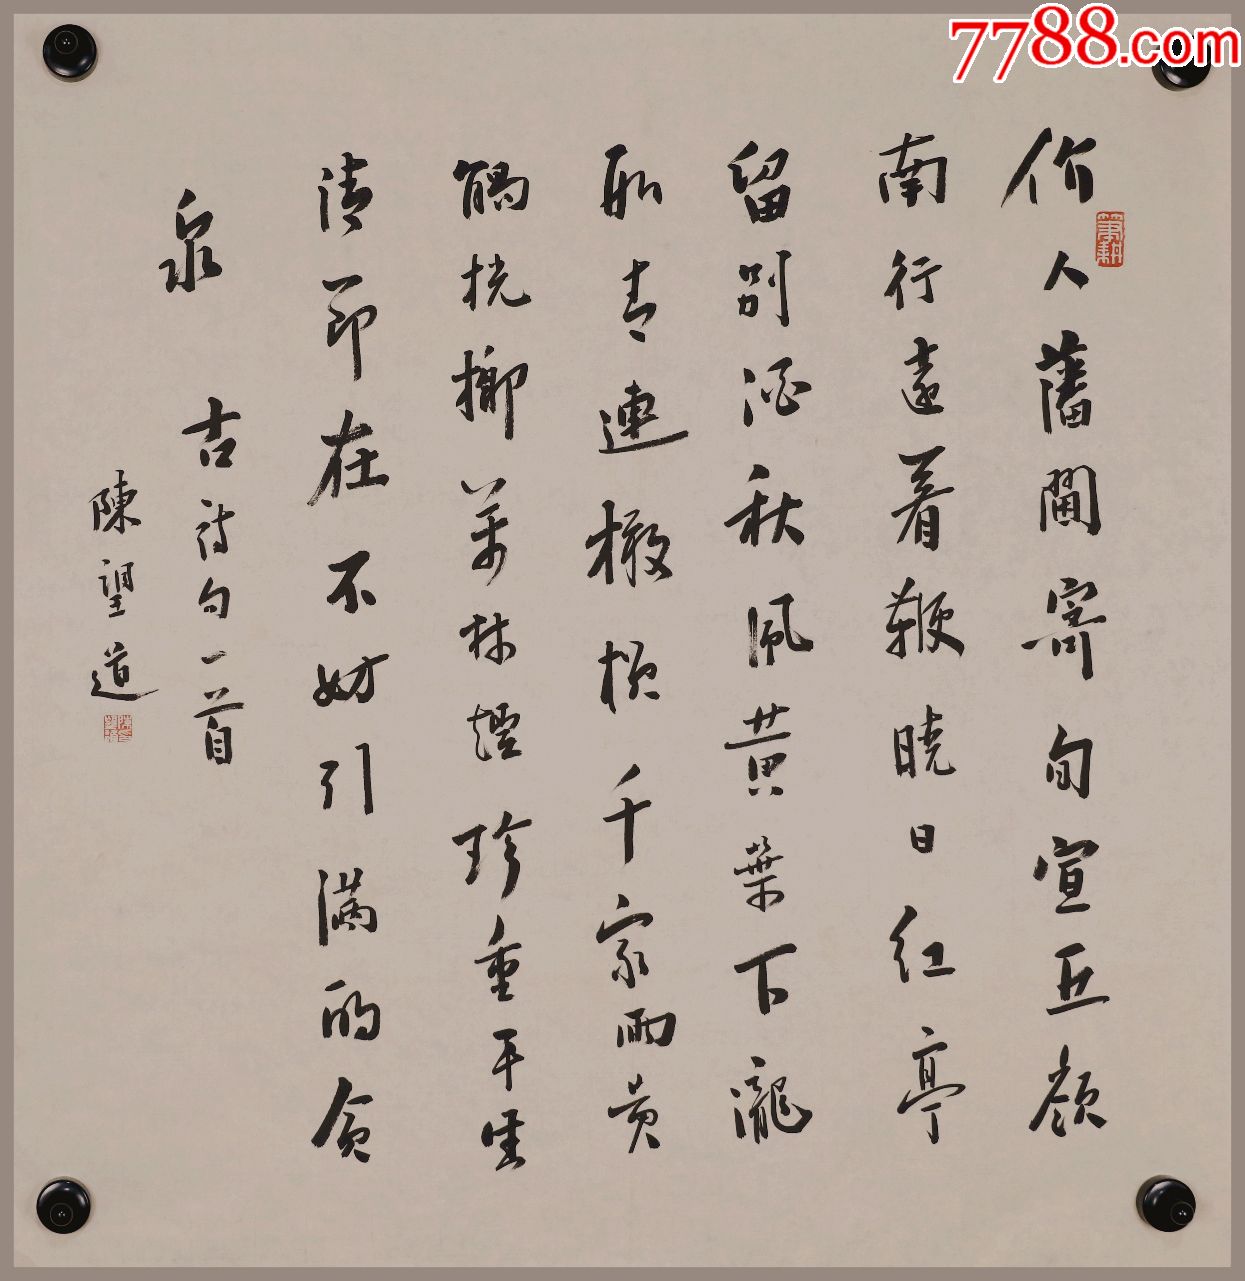 7788.com
价人藩閫寄旬宣五嶺
南行遠着鞭曉日紅亭
留别酒秋風黄葉下瀧
船青連橄榄千家雨黄
觸桄榔萬林煙珍重平生
清節在不妨引满酌貪
泉 古詩句一首
陳望道
筆耕